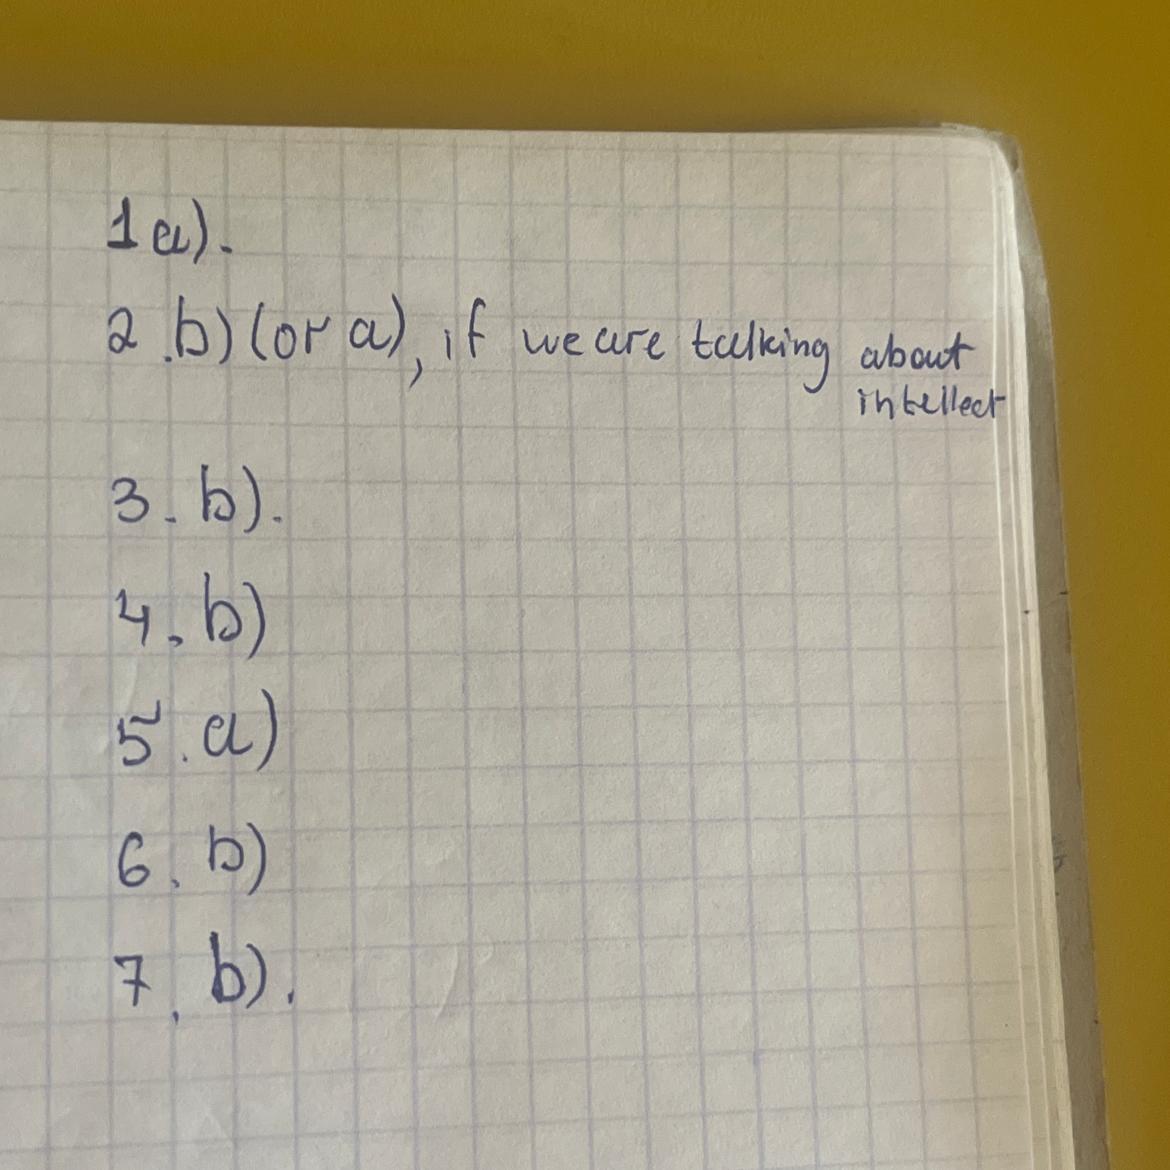 1 a).
2. b) (or a), if we are talking about
intellect
3. b).
4. b)
5. a)
6. b)
7. b).